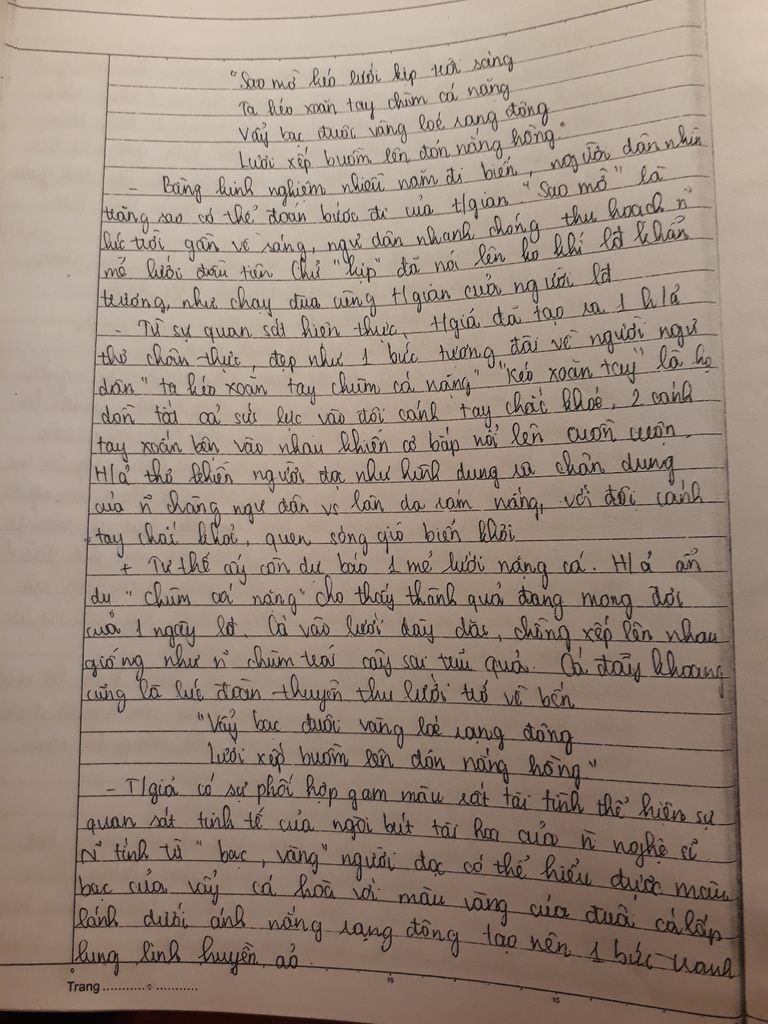 "Sao mờ kéo lưới kịp trời sáng
Ta kéo xoăn tay chùm cá nặng
Vẩy bạc đuôi vàng loé rạng đông
Lưới xếp buồm lên đón nắng hồng."
- Bằng kinh nghiệm nhiều năm đi biển, người dân nhìn
trăng sao có thể đoán bước đi của t/gian "Sao mờ" là
lúc trời gần về sáng, ngư dân nhanh chóng thu hoạch n~
mẻ lưới đầu tiên Chữ "kịp" đã nói lên ko khí lđ khẩn
trương, như chạy đua cùng t/gian của người lđ
- Từ sự quan sát hiện thực, t/giả đã tạo ra 1 h/ả
thơ chân thực, đẹp như 1 bức tượng đài về người ngư
dân "ta kéo xoăn tay chùm cá nặng" "Kéo xoăn tay" là họ
dồn tất cả sức lực vào đôi cánh tay chắc khoẻ, 2 cánh
tay xoắn bện vào nhau khiến cơ bắp nổi lên cuồn cuộn.
H/ả thơ khiến người đọc như hình dung ra chân dung
của n~ chàng ngư dân vs làn da rám nắng, với đôi cánh
tay chắc khoẻ, quen sóng gió biển khơi
+ Tư thế ấy còn dự báo 1 mẻ lưới nặng cá. H/ả ẩn
dụ "chùm cá nặng" cho thấy thành quả đang mong đợi
của 1 ngày lđ. Cá vào lưới dày đặc, chồng xếp lên nhau
giống như n~ chùm trái cây sai trĩu quả. Cá đầy khoang
cũng là lúc đoàn thuyền thu lưới trở về bến
"Vẩy bạc đuôi vàng loé rạng đông
Lưới xếp buồm lên đón nắng hồng"
- T/giả có sự phối hợp gam màu rất tài tình thể hiện sự
quan sát tinh tế của ngòi bút tài hoa của n~ nghệ sĩ
N~ tính từ "bạc, vàng" người đọc có thể hiểu được màu
bạc của vẩy cá hoà với màu vàng của đuôi cá lấp
lánh dưới ánh nắng rạng đông tạo nên 1 bức tranh
lung linh huyền ảo
Trang
0
10
15